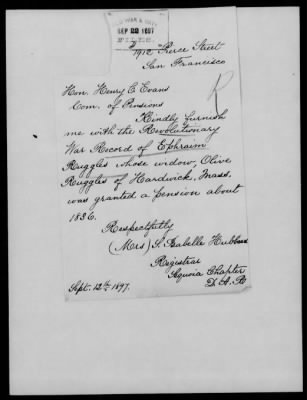 OLD WAR & NAVY
SEP 22 1897
FILES.
1912 Pierce Street
San Francisco
R
Hon. Henry C. Evans
Com. of Pensions
Kindly furnish
me with the Revolutionary
War Record of Ephraim
Ruggles whose widow, Olive
Ruggles of Hardwick, Mass.
was granted a pension about
1836.
Respectfully
(Mrs) S. Isabelle Hubbard
Registrar
Sequoia Chapter
D. A. R
Sept. 12th 1897.